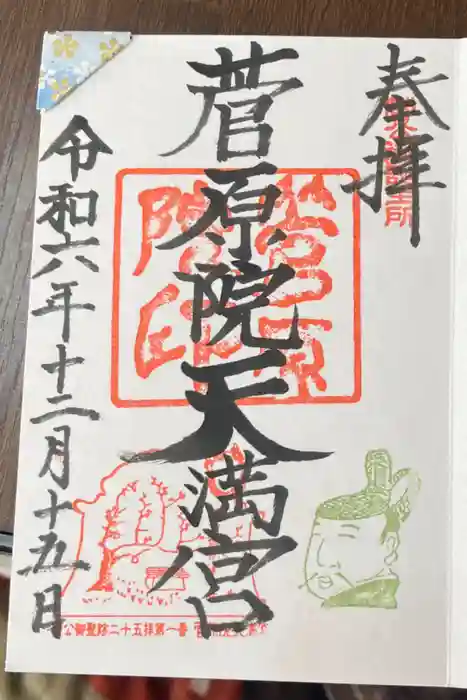 奉拝
菅原院天満宮
菅原院印
公御聖跡二十五拝第一番
令和六年十二月十五日